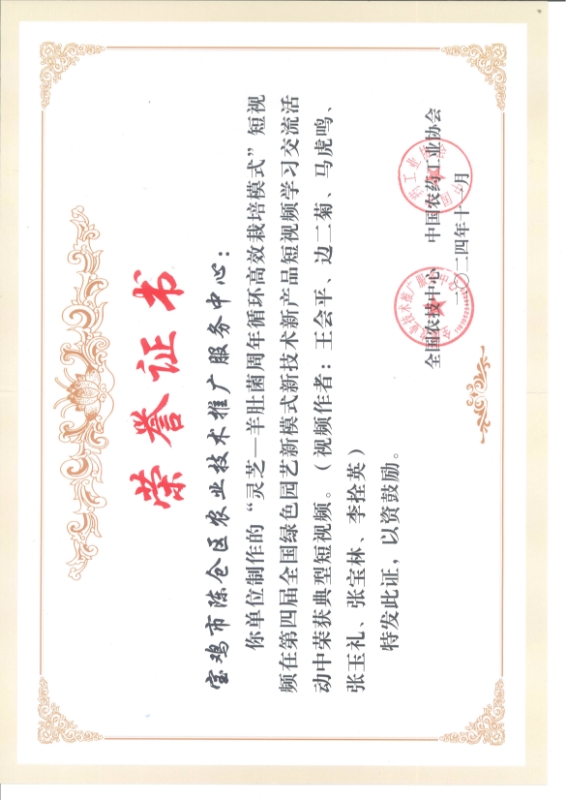 荣誉证书
宝鸡市陈仓区农业技术推广服务中心：
你单位制作的“灵芝—羊肚菌周年循环高效栽培模式”短视
频在第四届全国绿色园艺新模式新技术新产品短视频学习交流活
动中荣获典型短视频。（视频作者：王会平、边二菊、马虎鸣、
张玉礼、张宝林、李拴英）
特发此证，以资鼓励。
全国农技中心 中国农药工业协会
二〇二四年十一月